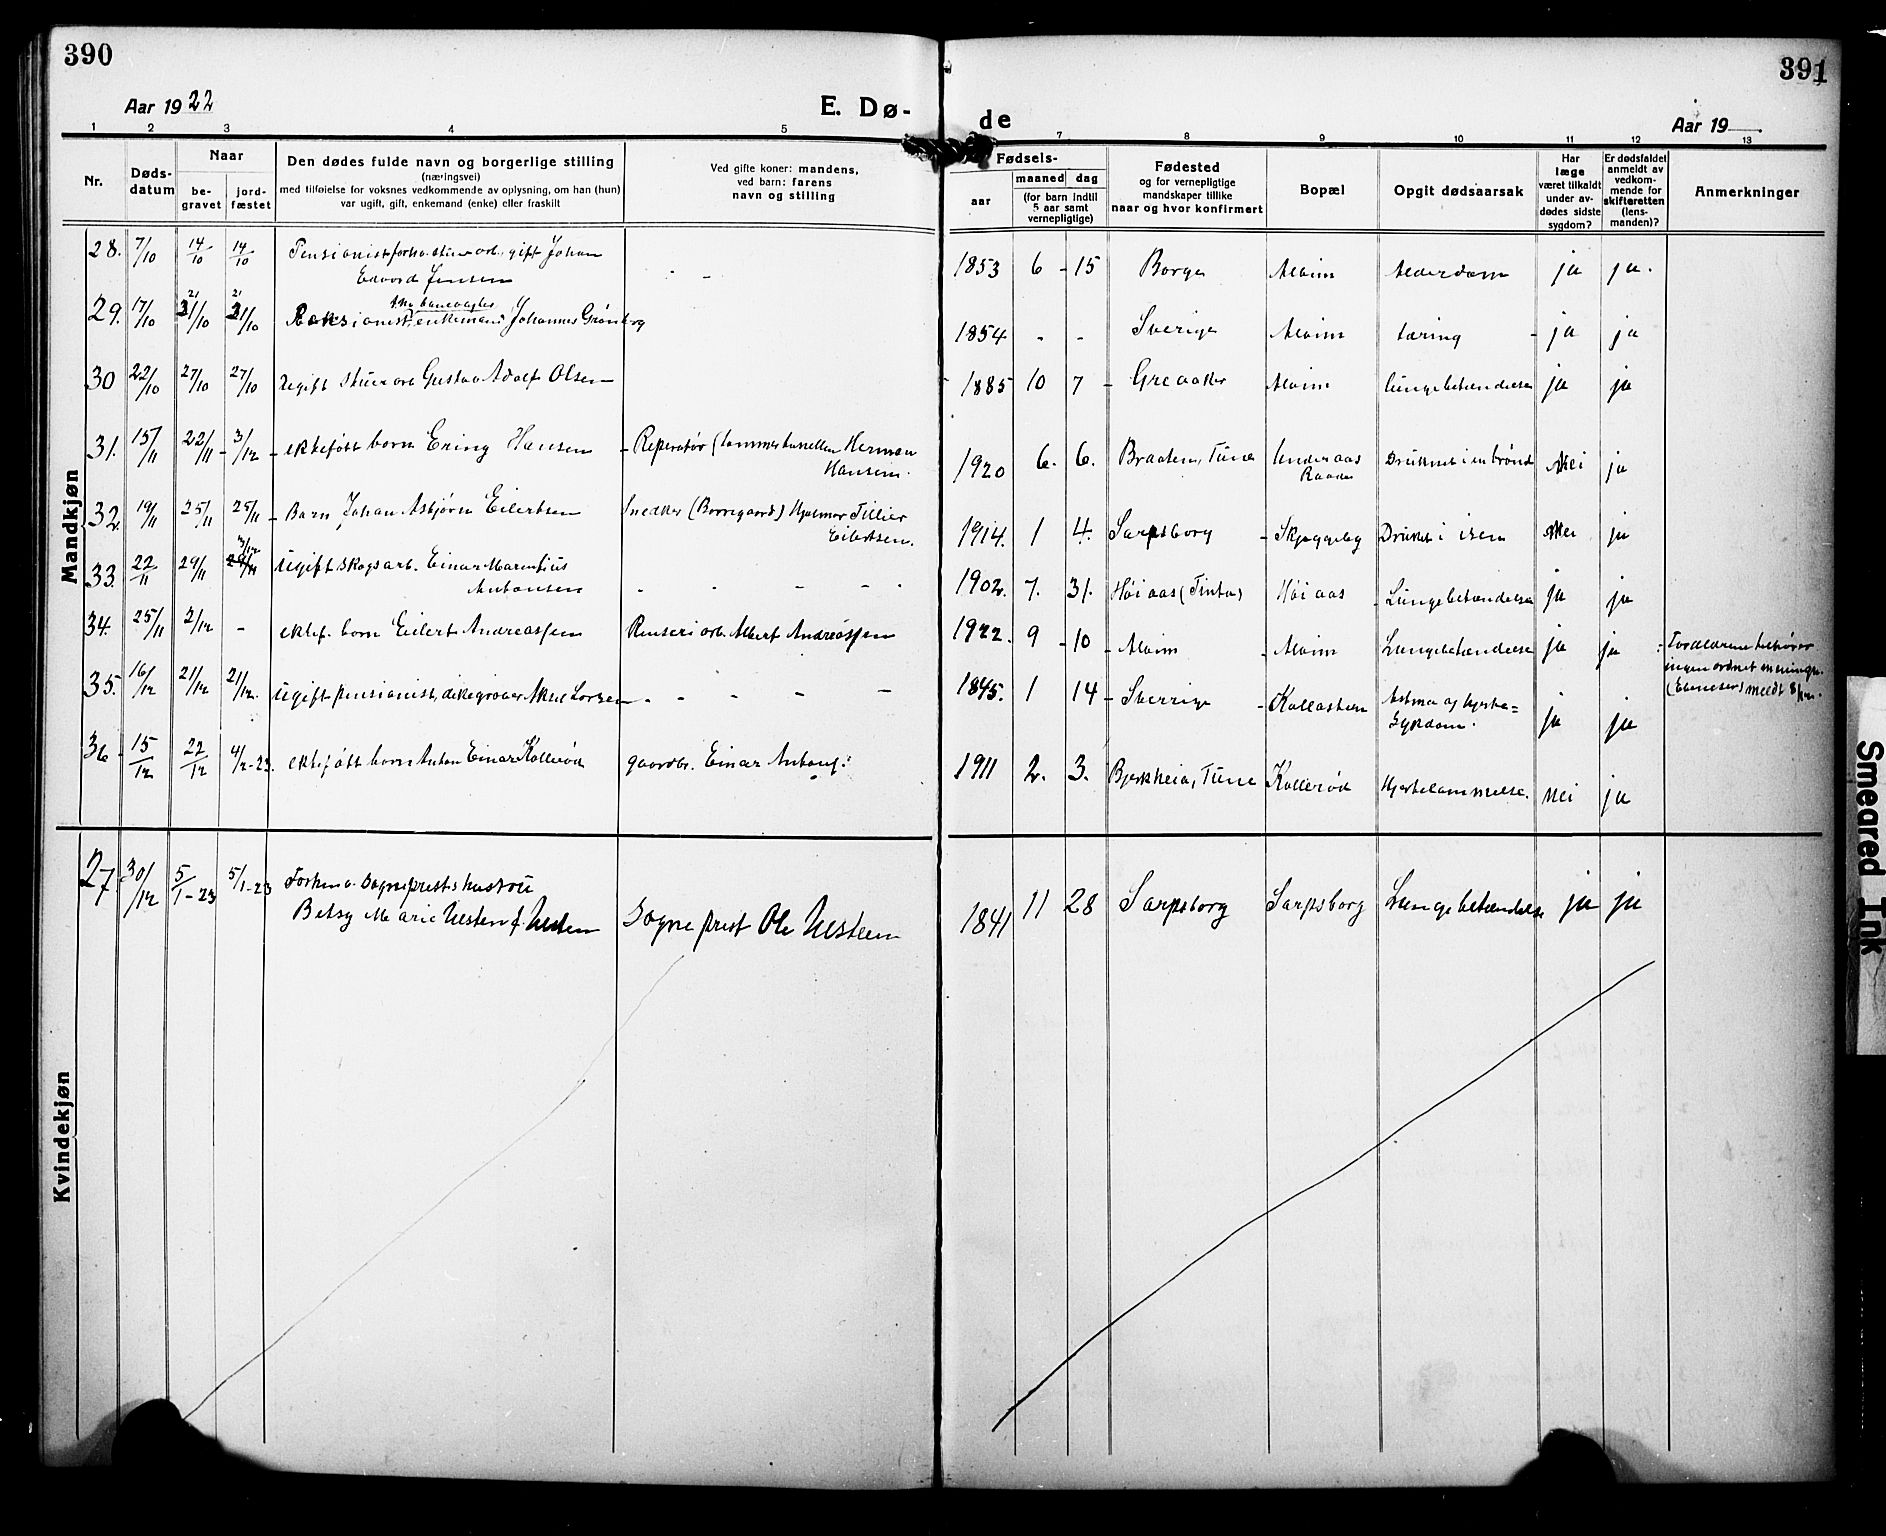 390
Aar 1922
E. Dø-
1 2 3 4 5
Nr.
Døds-
datum
Naar
be-
gravet
jord-
fæstet
Den dødes fulde navn og borgerlige stilling
(næringsvei)
med tilføielse for voksnes vedkommende av oplysning, om han (hun)
var ugift, gift, enkemand (enke) eller fraskilt
Ved gifte koner: mandens,
ved barn: farens
navn og stilling
391
de
Aar 19
7 8 9 10 11 12 13
Fødsels-
aar
maaned dag
(for barn indtil
5 aar samt
vernepligtige)
Fødested
og for vernepligtige
mandskaper tillike
naar og hvor konfirmert
Bopæl
Opgit dødsaarsak
Har
læge
været tilkaldt
under av-
dødes sidste
sygdom?
Er dødsfaldet
anmeldt av
vedkom-
mende for
skifteretten
(lens-
manden)?
Anmerkninger
Mandkjøn
28. 7/10 14/10 14/10 Pensionist gift Johan
Edvard Jensen - - 1853 6 - 15 Borge Alvim Alderdom ja ja.
29. 17/10 21/10 21/10 enkemand Johannes Grønberg 1854 - - Sverige Alvim tæring - ja ja
30 22/10 27/10 27/10 Ugift Gustav Adolf Olsen 1885 10 7 - Greaaker Alvim lungebetændelse ja ja
31. 15/11 22/11 - 3/12 - ektefødt barn Hansen - Reperatør Herman
Hansen. 1920 6. 6. Braaten, Tune Underaas
Raade Druknet i en brønd Nei ja
32. 19/11 25/11 25/11 - Barn Johan Asbjørn Eilertsen Snedker (Borregaard) Hjalmar Tillier
Eilertsen. 1914. 1 4. Sarpsborg - Skjeggeby Druknet i isen Nei ja
33. 22/11 29/11 3/12 Ugift skogsarb. Einar Marentius
Antonsen - - - . 1902. 7. 31. Høiaas Høiaas - Lungebetændelse ja ja
34. 25/11 2/12 - ektef. barn Eilert Andreassen Renseriarb. Albert Andreassen 1922. 9 - 10 - Alvim - Alvim Lungebetændelse ja ja
35. 16/12 21/12 21/12. Ugift pensionist, Larsen - - - - 1845. 1 14 - Sverrige - Astma og hjerte=
sygdom. ja ja
36 - 15/12 22/12 4/2-23. ektefødt barn Anton Einar Kollerød gaardbr. Einar 1911 2. 3. Bjerkheia, Tune Kollerød Hjertelammelse. Nei ja
(Ebeneser) meldt
Kvindekjøn
27. 30/12 5/1-23 5/1-23 Forhenv. Sogneprests hustru
Betsy Marie f. Sogneprest Ole 1841 11 28 Sarpsborg Sarpsborg Lungebetændelse ja ja
Smeared Ink